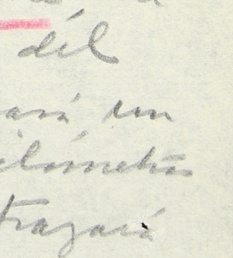 del
ará un
ilómetros
trazará